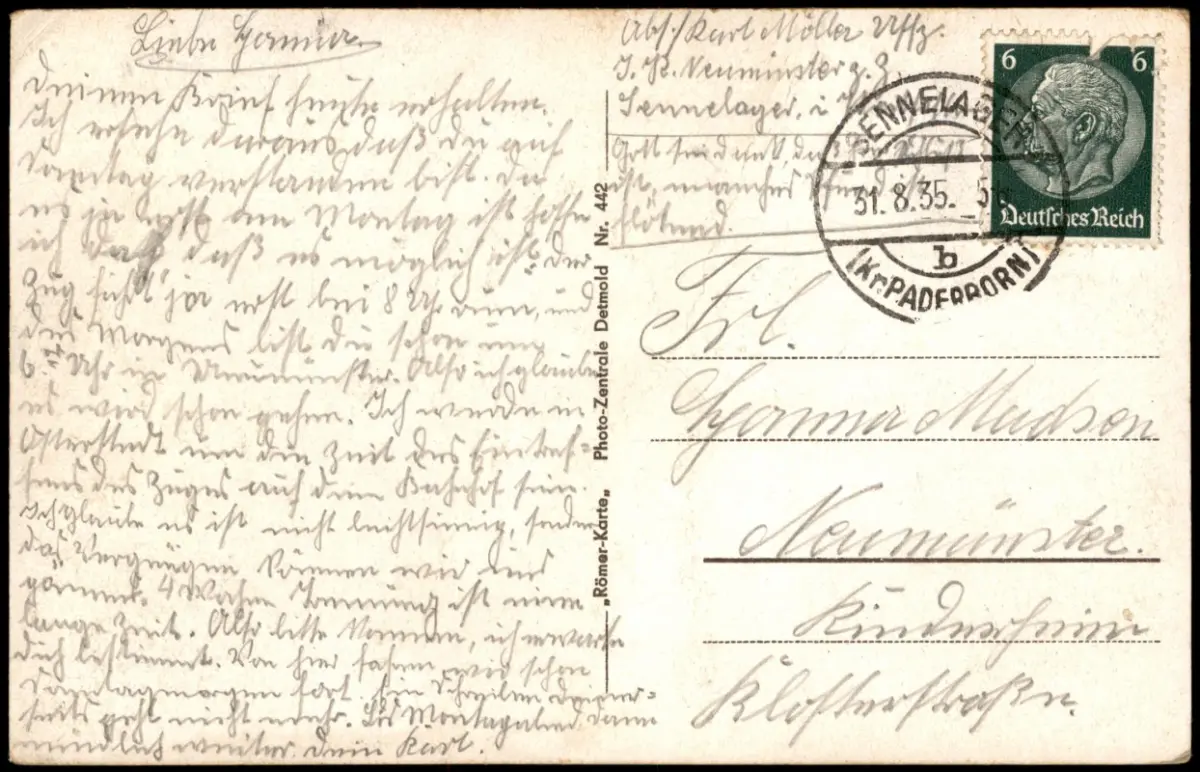 Liebe Hanna.
Deinen Brief heute erhalten.
Ich ersehe daraus daß du auf
Sonntag verstanden bist. Da
es ja erst am Montag ist hoffe
ich daß es möglich ist. Der
Zug fährt ja erst bei 8 Uhr rum, und
des Morgens bist du schon um
6 Uhr in Neumünster. Also ich glaube
es wird schon gehen. Ich werde in
um die Zeit des Eintref=
fens des Zuges auf dem Bahnhof sein.
Ich glaube es ist nicht leichtsinnig, sondern
das Vergnügen können wir uns
gönnen. 4 Wochen Trennung ist eine
lange Zeit. Also bitte kommen, ich erwarte
dich bestimmt. Von hier fahren wir schon
Sonntagmorgen fort. Ein Schreiben deiner=
seits geht nicht mehr. Bis Montagabend dann
mündlich weiter. Dein Karl.
Abs./ Karl Möller Uffz.
Neumünster z. Z.
Sennelager, i
Gott sei dank, daß
ist, manches Pfund ist
flöten.
"Römer-Karte" Photo-Zentrale Detmold Nr. 442
6 6
Deutsches Reich
SENNELAGER
31. 8. 35.
b
(Kr. PADERBORN)
Frl.
Hanna Madsen
Neumünster.
Kinderheim
Klosterstraße.